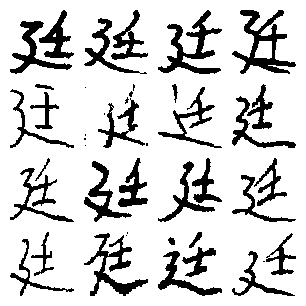 廷廷廷廷
廷廷廷廷
廷廷廷廷
廷廷廷廷